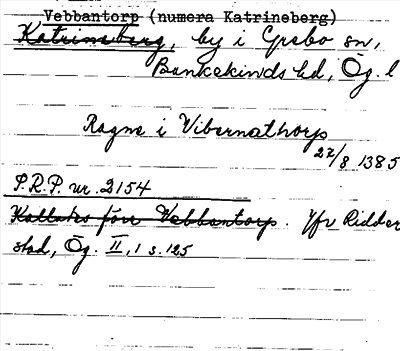 Vebbantorp (numera Katrineberg)
Katrineberg, by i Grebo sn,
Bankekinds hd, Ög. l
Ragne i Vibernathorp
22/8 1385
S.R.P. nr. 2154
Kallades förr Vebbantorp. Jfr Ridder
stad, Ög. II, 1 s. 125